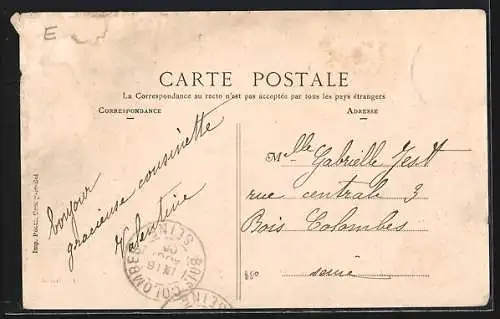 E
CARTE POSTALE
La Correspondance au recto n'est pas acceptée par tous les pays étrangers
CORRESPONDANCE
ADRESSE
bonjour
gracieuse cousinette
Valentine
Mlle Gabrielle
rue centrale 3
Bois Colombes
seine
BOIS COLOMBES
SEINE